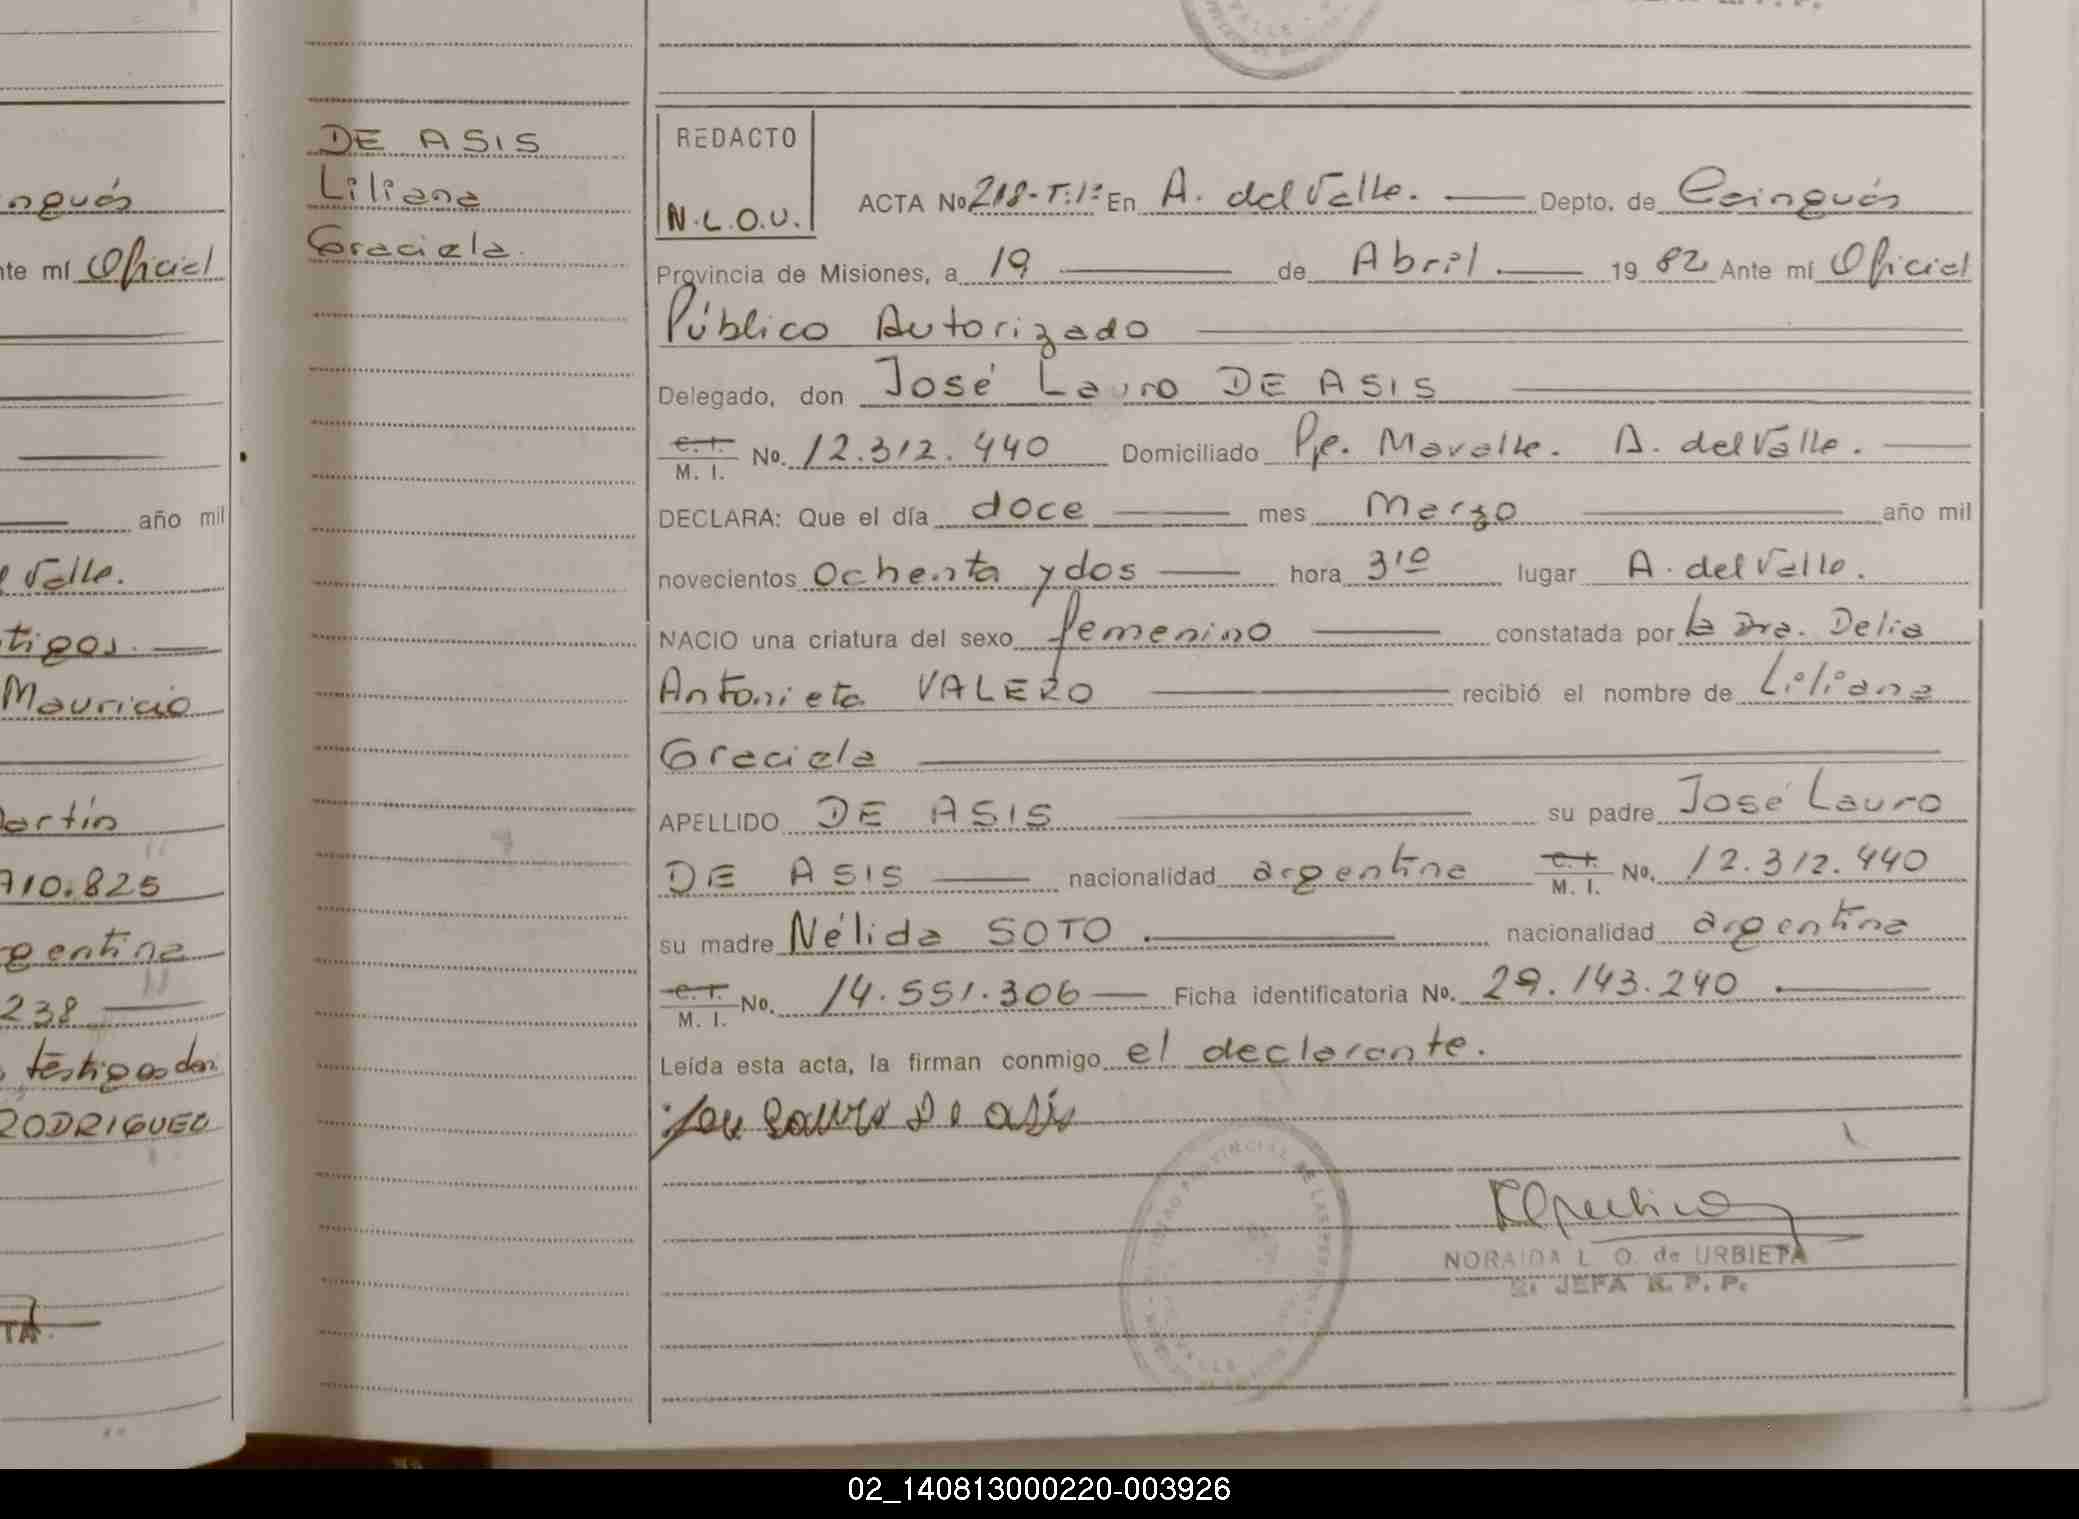 DE ASIS
Liliana
Graciela.
REDACTO
N.L.O.U.
ACTA No 218-T:1º En A. del Valle. Depto. de Cainguás
Provincia de Misiones, a 19 de Abril. 19 82 Ante mí Oficial
Público Autorizado
Delegado, don José Lauro DE ASIS
C. I. M. I. No. 12.312.440 Domiciliado Pje. Mavalle. A. del Valle.
DECLARA: Que el día doce mes Marzo año mil
novecientos Ochenta y dos hora 310 lugar A. del Valle.
NACIO una criatura del sexo femenino constatada por la Dra. Delia
Antonieta VALERO recibió el nombre de Liliana
Graciela
APELLIDO DE ASIS su padre José Lauro
DE ASIS nacionalidad argentina C. I. M. I. No. 12.312.440
su madre Nélida SOTO. nacionalidad argentina
C. I. M. I. No. 14.551.306 Ficha identificatoria No. 29.143.240.
Leída esta acta, la firman conmigo el declarante.
Jose Lauro De asis
NORAIDA L. O. de URBIETA
JEFA R. P. P.
inguás
nte mí Oficial
año mil
l Valle.
tigos.
Mauricio
artín
910.825
rgentina
238
testigos don
RODRIGUEZ
TA.
02_140813000220-003926